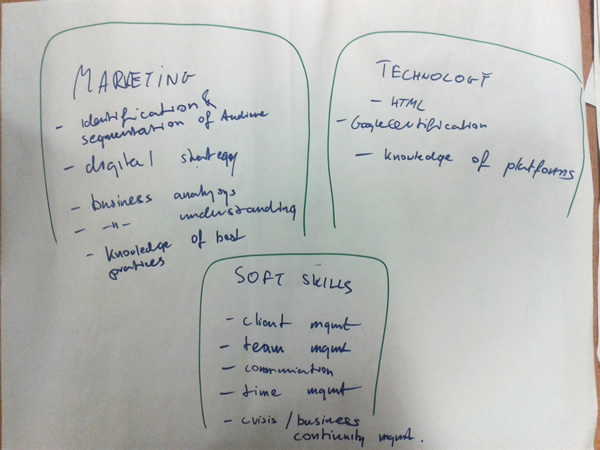 MARKETING
- identification &
segmentation of Audience
- digital strategy
- business analysys
- -"- understanding
- knowledge of best
practices
TECHNOLOGY
- HTML
- Google certification
- knowledge of platforms
SOFT SKILLS
- client mgmt
- team mgmt
- communication
- time mgmt
- crisis / business
continuity mgmt.